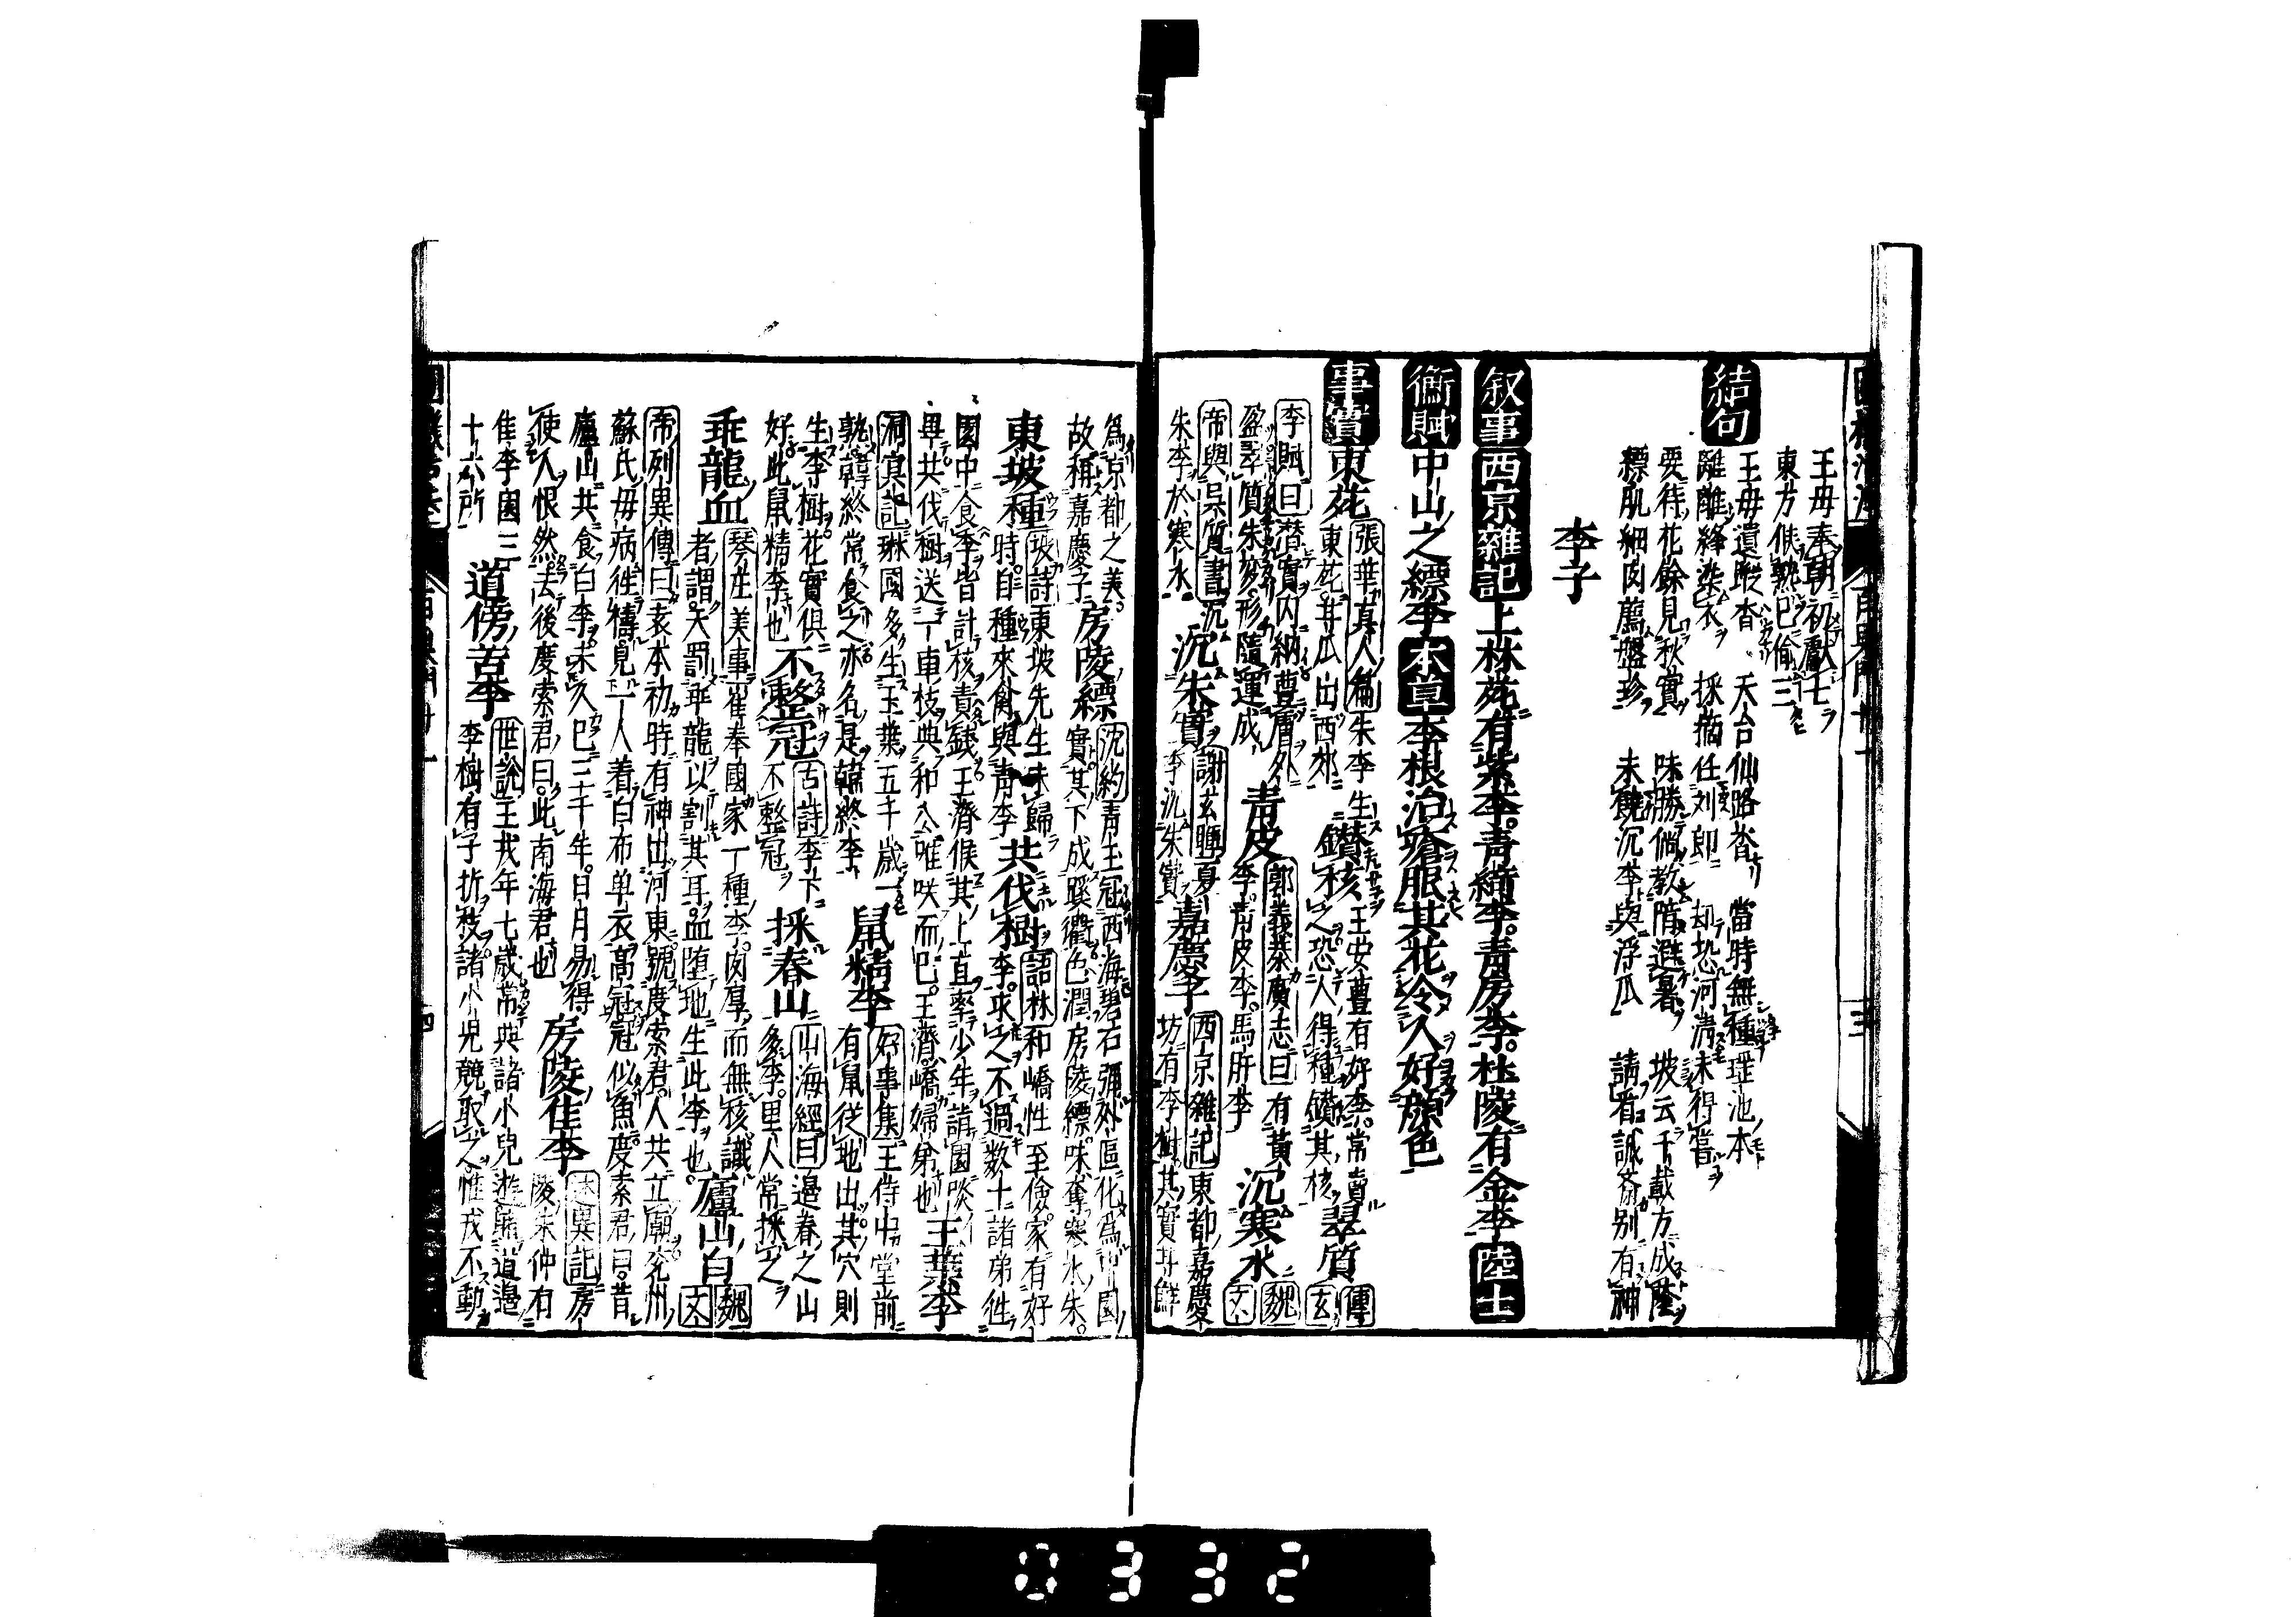 王母奉朝初獻七
東方佚熟已偷三
結句
王母遺蹤杳 天台仙路杳 當時無種 池本
離離絳染衣 採摘任刘郎 却恐河清未得嘗
要待花餘見秋實 味勝 教隋進暑 坡云千載方成
標肌細肉薦盤珍 未饒沉李與浮瓜 請看誠齋別有神
李子
叙事 西京雜記 上林苑有紫李青綺李青房李杜陵有金李 陸士
衡賦 中山之縹李 本草 李根治瘡服其花令人好顏色
事實 東苑 張華真人篇 朱李生
東苑甘瓜出西郊 鑽核 王安豊有好李常賣
之恐人得種鑽其核 翠質 傅玄
李賦曰 潜實内納豊膚外
盈翠質朱変形隨運成 青皮 郭義恭廣志曰 有黃
李青皮李馬肝李 沉寒水 魏文
帝與呉質書 沉
朱李於寒水 沉朱實 謝玄暉 夏
李沉朱實 嘉慶子 西京雜記 東都嘉慶
坊有李樹其實甘鮮
為京都之美
故稱嘉慶子 房陵縹 沈約 青玉冠西海碧石彌外區化為 園
實其下成蹊衢色潤房陵縹味奪寒水朱
東坡種 坡詩 東坡先生未歸
時自種來禽與青李 共伐樹 語林 和嶠性至儉家有好
李求之不過数十諸弟往
園中食李皆計核責錢王濟候其上直率少年詣園啖
畢共伐樹送一車枝與和公唯咲而已王濟嶠婦弟也 玉葉李
洞冥記 琳國多生玉葉五千歳一
熟韓終常食之亦名是韓終李 鼠精李 好事集 王侍中堂前
有鼠從地出其穴則
生李樹花實俱
好此鼠精李也 不整冠 古詩 李下
不整冠 採春山 山海經曰 邊春之山
多李里人常採之
乖龍血 琴庄美事 崔奉國家一種李肉厚而無核識
者謂天罰乖龍以割其耳血墮地生此李也 廬山白 魏文
帝列異傳曰 袁本初時有神出河東號度索君人共立廟兖州
蘇氏母病往禱見一人着白布单衣高冠冠似魚度索君曰昔
廬山共食白李未久已三千年日月易得
使人恨然去後度索君曰此南海君也 房陵佳李 述異記 房
陵朱仲有
佳李園三
十六所 道傍苦李 世說 王戎年七歳常與諸小兒遊 道邉
李樹有子折枝諸小兒競取之惟戎不動
0332